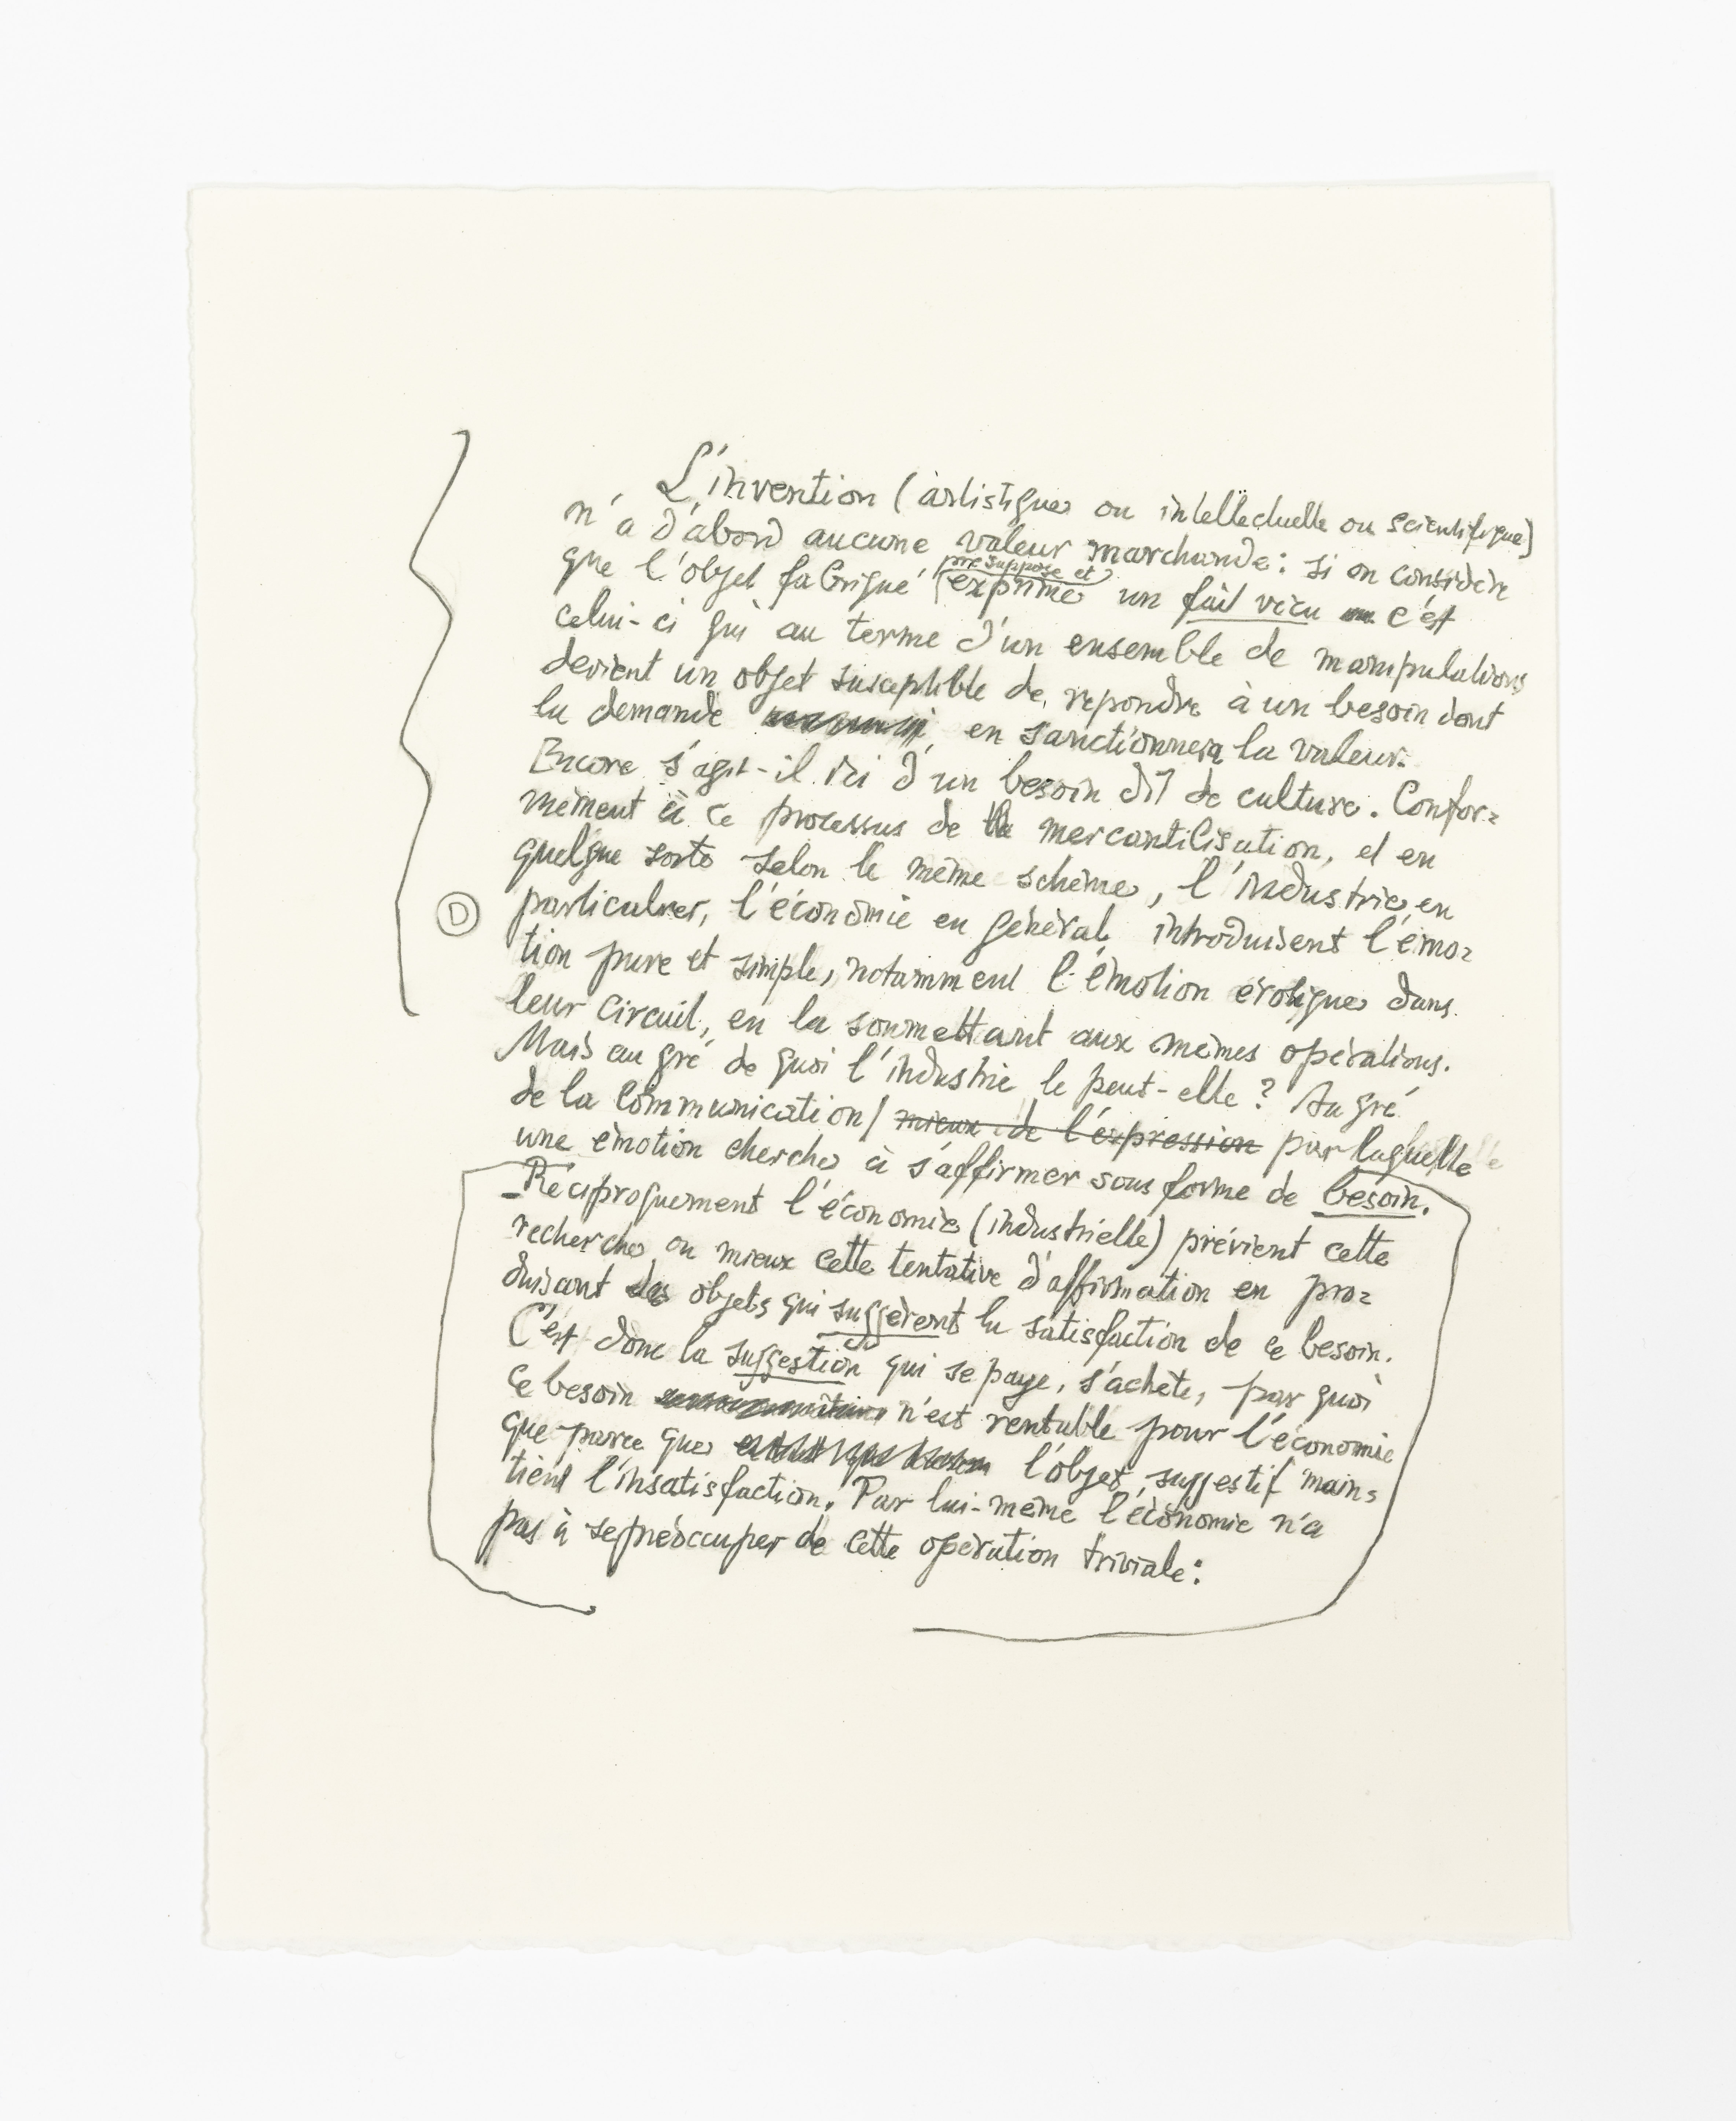 L'invention (artistique ou intellectuelle ou scientifique)
n'a d'abord aucune valeur marchande : si on considère
pré suppose et
que l'objet fabriqué exprime un fait vécu c'est
celui-ci qui au terme d'un ensemble de manipulations
devient un objet susceptible de repondre à un besoin dont
la demande en sanctionnera la valeur.
Encore s'agit-il ici d'un besoin dit de culture. Confor=
mément à ce processus de mercantilisation, et en
quelque sorte selon le même schème, l'industrie en
D
particulier, l'économie en général introduisent l'émo=
tion pure et simple, notamment l'émotion érotique dans
leur circuit, en la soumettant aux mêmes opérations.
Mais au gré de quoi l'industrie le peut-elle ? Au gré
de la communication / mieux de l'expression par laquelle
une émotion cherche à s'affirmer sous forme de besoin.
– Réciproquement l'économie (industrielle) prévient cette
recherche ou mieux cette tentative d'affirmation en pro=
duisant des objets qui suggèrent la satisfaction de ce besoin.
C'est donc la suggestion qui se paye, s'achète, par quoi
ce besoin n'est rentable pour l'économie
que parce que l'objet suggestif main=
tient l'insatisfaction. Par lui-même l'économie n'a
pas à se préoccuper de cette opération triviale :